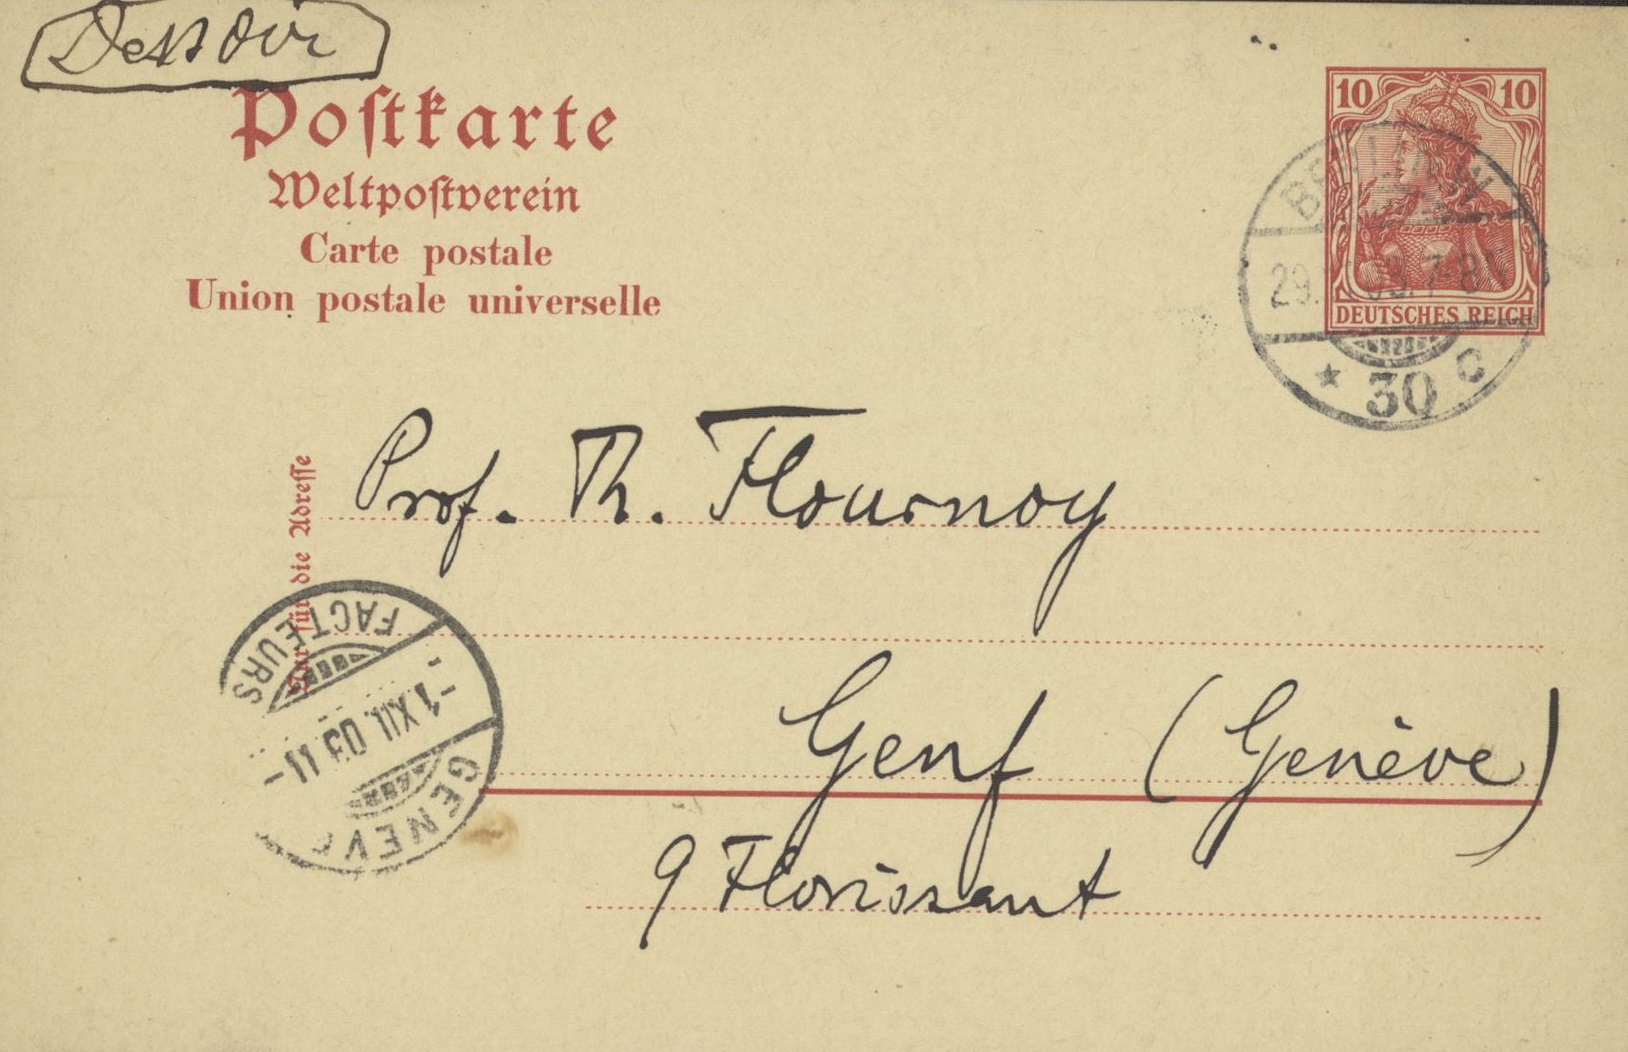 Dessoir
Postkarte
Weltpostverein
Carte postale
Union postale universelle
10 10
DEUTSCHES REICH
BERLIN W
29. 7-8N
* 30 c
Prof. Th. Flournoy
Nur für die Adresse
Genf (Genève)
9 Florissant
FACTEURS
-1.XII.05 11-
GENEVE